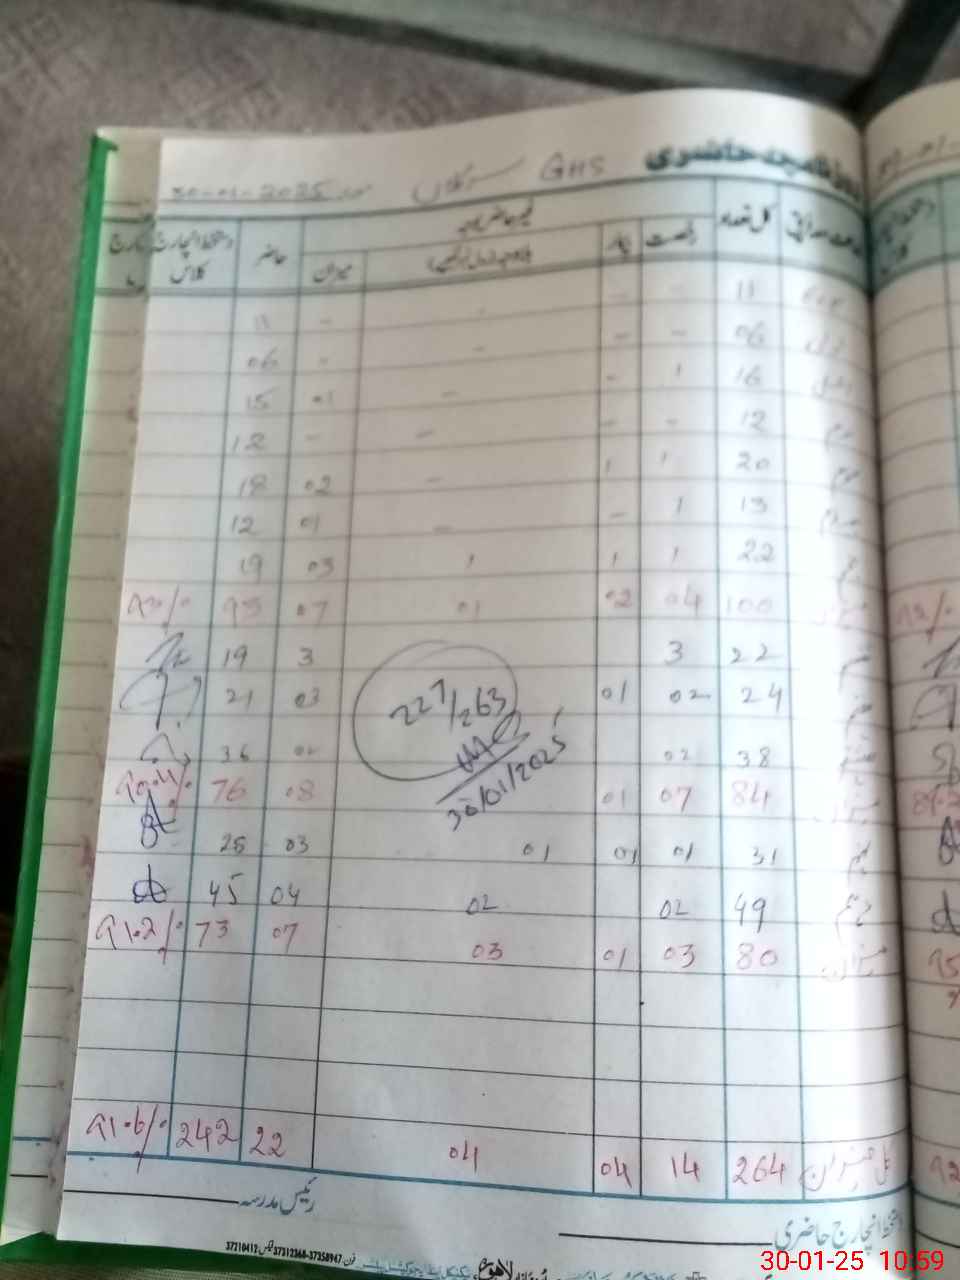 روزنامچہ حاضری GHS سرکلاں مورخہ 30-01-2025
جماعت میزانی کل تعداد رخصت بیمار غیر حاضر بوجہ حاضر دستخط انچارج کلاس
میزان
11 - - - - 11
06 - - - - 06
16 1 - - 01 15
12 - - - - 12
20 1 1 - 02 18
13 1 - - 01 12
22 1 1 1 03 19
میزان 100 04 02 01 07 93 93%
22 3 3 19
24 02 01 03 21
38 02 02 36
میزان 84 07 01 08 76 90.4%
نہم 31 01 01 01 03 25
دہم 49 02 02 04 45
میزان 80 03 01 03 07 73 91.2%
227/263
30/01/2025
کل میزان 264 14 04 04 22 242 91.6%
رئیس مدرسہ
دستخط انچارج حاضری
لاہور فون 37312368-37358947 فیکس 37210412
30-01-25 10:59